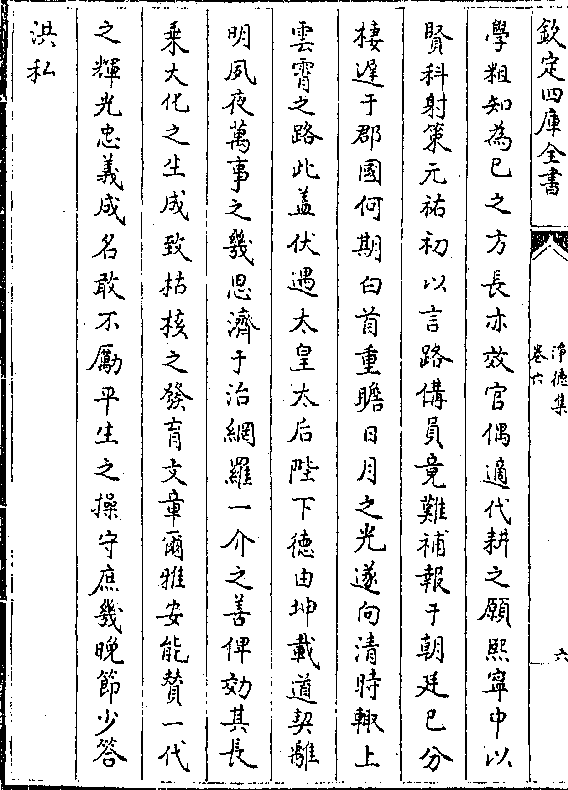 欽定四庫全書
淨德集
卷六
六
學粗知為己之方長亦效官偶適代耕之願熙寧中以
賢科射策元祐初以言路備員竟難補報于朝廷已分
棲遲于郡國何期白首重瞻日月之光遂向清時輙上
雲霄之路此盖伏遇太皇太后陛下德由坤載道契離
明夙夜萬事之幾思濟于治網羅一介之善俾効其長
乘大化之生成致枯核之發育文章爾雅安能賛一代
之輝光忠義成名敢不勵平生之操守庶幾晚節少答
洪私